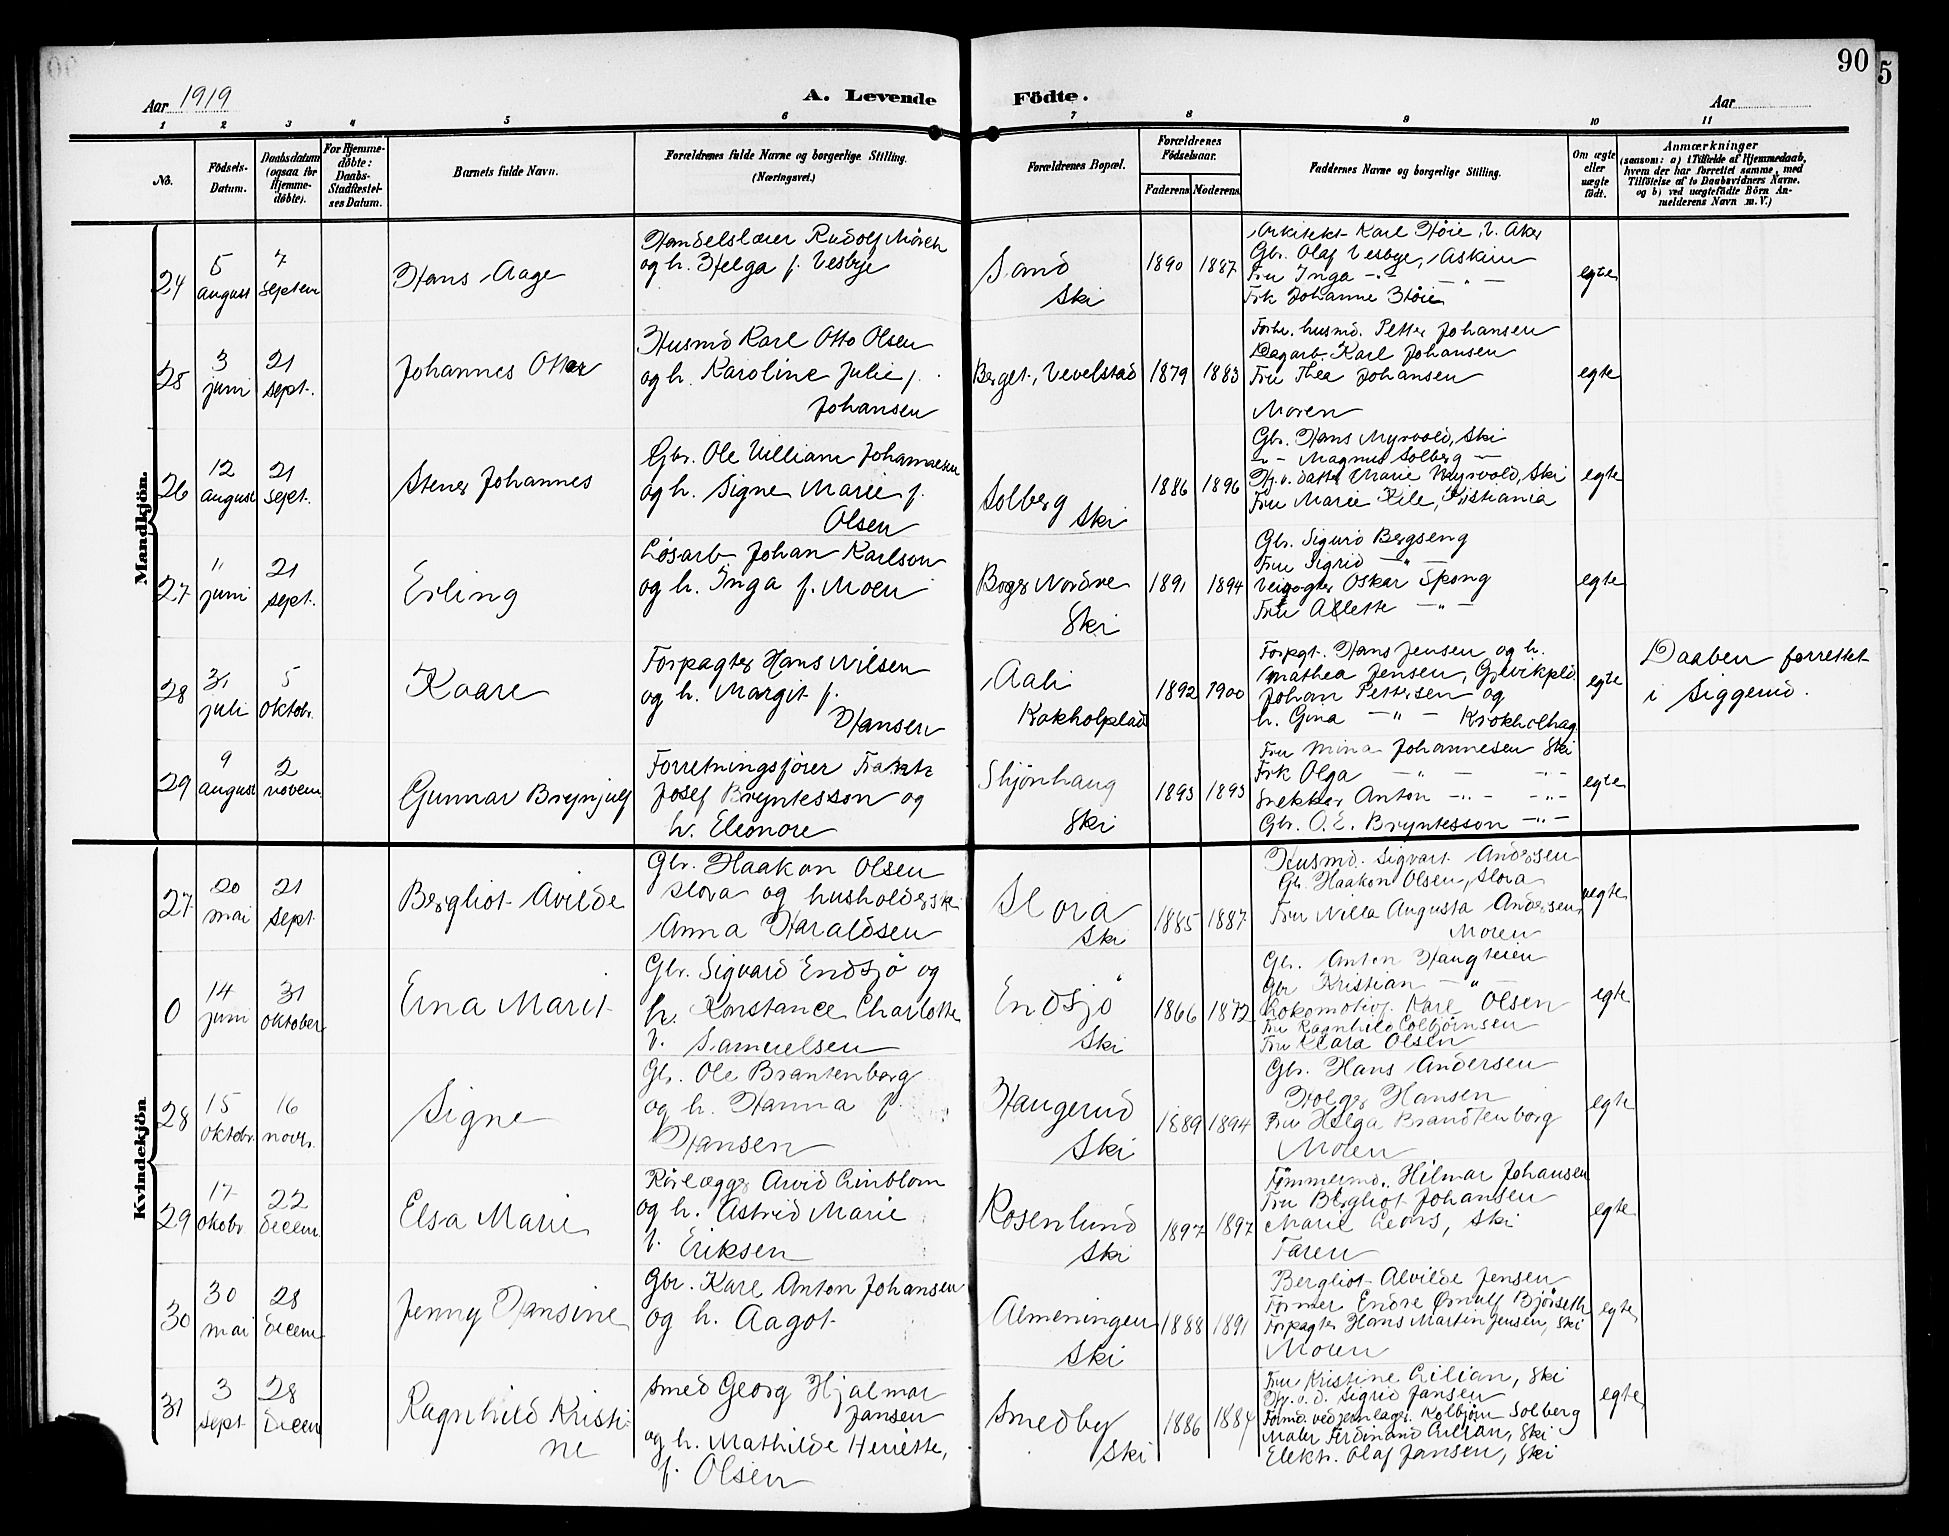 90
5
Aar 1919
A. Levende Födte.
Aar
1 2 3 4 5 6 7 8 9 10 11
No.
Födsels-
Datum.
Daabsdatum
(ogsaa for
Hjemme-
døbte).
For Hjemme-
døbte:
Daabs-
Stadfæstel-
ses Datum.
Barnets fulde Navn.
Forældrenes fulde Navne og borgerlige Stilling.
(Næringsvei.)
Forældrenes Bopæl.
Forældrenes
Födselsaar.
Faderens
Moderens.
Faddernes Navne og borgerlige Stilling.
Om ægte
eller
uægte
født.
Anmærkninger
(saasom: a) i Tilfælde af Hjemmedaab,
hvem der har forrettet samme, med
Tilföielse af to Daabsvidners Navne.
og b) ved uægtefödte Börn An-
melderens Navn m.V.)
Mandkjön.
24
5
august
7
septem
Hans Aage
Handelslærer Rudolf Mörch
og h. Helga f. Vesbye
Sand
Ski
1890
1887
Arkitekt Karl Höie, V. Aker
Gbr. Olaf Vesbye, Askim
Fru Inga -"- -"-
Frk Johanne Höie
egte
25
3
juni
21
sept.
Johannes Otter
Husmd Karl Otto Olsen
og h. Karoline Julie f.
Johansen
Berget, Vevelstad
1879
1883
Forh. husmd. Petter Johansen
Dagarb. Karl Johansen
Fru Thea Johansen
Moren
egte
26
12
august
21
sept.
Stener Johannes
Gbr. Ole Villiam Johannesen
og h. Signe Marie f.
Olsen
Solberg
Ski
1886
1896
Gbr. Hans Myrvold, Ski
-"- Magnus Solberg -"-
Hj.v. datter Marie Myrvold, Ski
Fru Marie Kile, Kristiania
egte
27
11
juni
21
sept.
Erling
Lösarb. Johan Karlson
og h. Inga f. Moen
Boger Nordre
Ski
1891
1894
Gbr. Sigurd Bergseng
Fru Sigrid -"-
Veivogter Oskar Spong
Fru Alette -"-
egte
28
31
juli
5
oktobr.
Kaare
Forpagter Hans Nilsen
og h. Margit f.
Hansen
Aali
Kakholplads
1892
1900
Forpgt. Hans Jensen og h.
Mathea Jensen, Gjevikpld
Johan Pettersen og
h. Gina -"- Krokholhag
egte
Daaben forrettet
i Siggerud.
29
9
august
2
novem
Gunnar Brynjulf
Forretningsförer Frantz
Josef Bryntesson og
h. Eleonore
Skjönhaug
Ski
1893
1893
Fru Mina Johannesen Ski
Frk Olga -"- -"-
Snekker Anton -"- -"-
Gbr. O. E. Bryntesson -"-
egte
Kvindekjön
27
20
mai
21
sept
Bergliot Avilde
Gbr. Haakon Olsen
Slora og husholderske
Anna Haraldsen
Slora
Ski
1885
1887
Husmd. Sigvart Andersen
Gb. Haakon Olsen, Slora
Fru Nilla Augusta Andersen
Moren
uegte
0
14
juni
31
oktober
Erna Marit
Gbr. Sigvard Endsjö og
h. Konstance Charlotte
f. Samuelsen
Endsjö
Ski
1866
1872
Gbr. Anton Haugteien
Gbr Kristian -"-
Lokomotivf. Karl Olsen
Fru Ragnhild Colbjörnsen
Fru Klara Olsen
egte
28
15
oktobr.
16
novr.
Signe
Gbr. Ole Brantenborg
og h. Hanna f.
Hansen
Haugerud
Ski
1889
1894
Gbr. Hans Andersen
Holger Hansen
Fru Helga Brandtenborg
Moren
egte
29
17
okobr
22
decem.
Elsa Marie
Rörlægger Arvid Linblom
og h. Astrid Marie
f. Eriksen
Rosenlund
Ski
1897
1897
Tömmermd. Hilmar Johansen
Fru Bergliot Johansen
Marie Leons, Ski
Faren
egte
30
30
mai
28
decem
Jenny Hansine
Gbr. Karl Anton Johansen
og h. Aagot
Almeningen
Ski
1888
1891
Bergliot Alvilde Jensen
Former Endre Ørnulf Bjørseth
Forpagter Hans Martin Jensen, Ski
Moren
egte
31
3
sept.
28
decem
Ragnhild Kristi-
ne
Smed Georg Hjalmar
Jansen
og h. Mathilde Henriette,
f. Olsen
Smedby
Ski
1886
1884
Fru Kristine Lilian, Ski
Hj.v.d. Sigrid Jansen
Formd. ved jernlager. Kolbjørn Solberg
Maler Ferdinand Lilian, Ski
Elektr. Olaf Jansen, Ski
egte